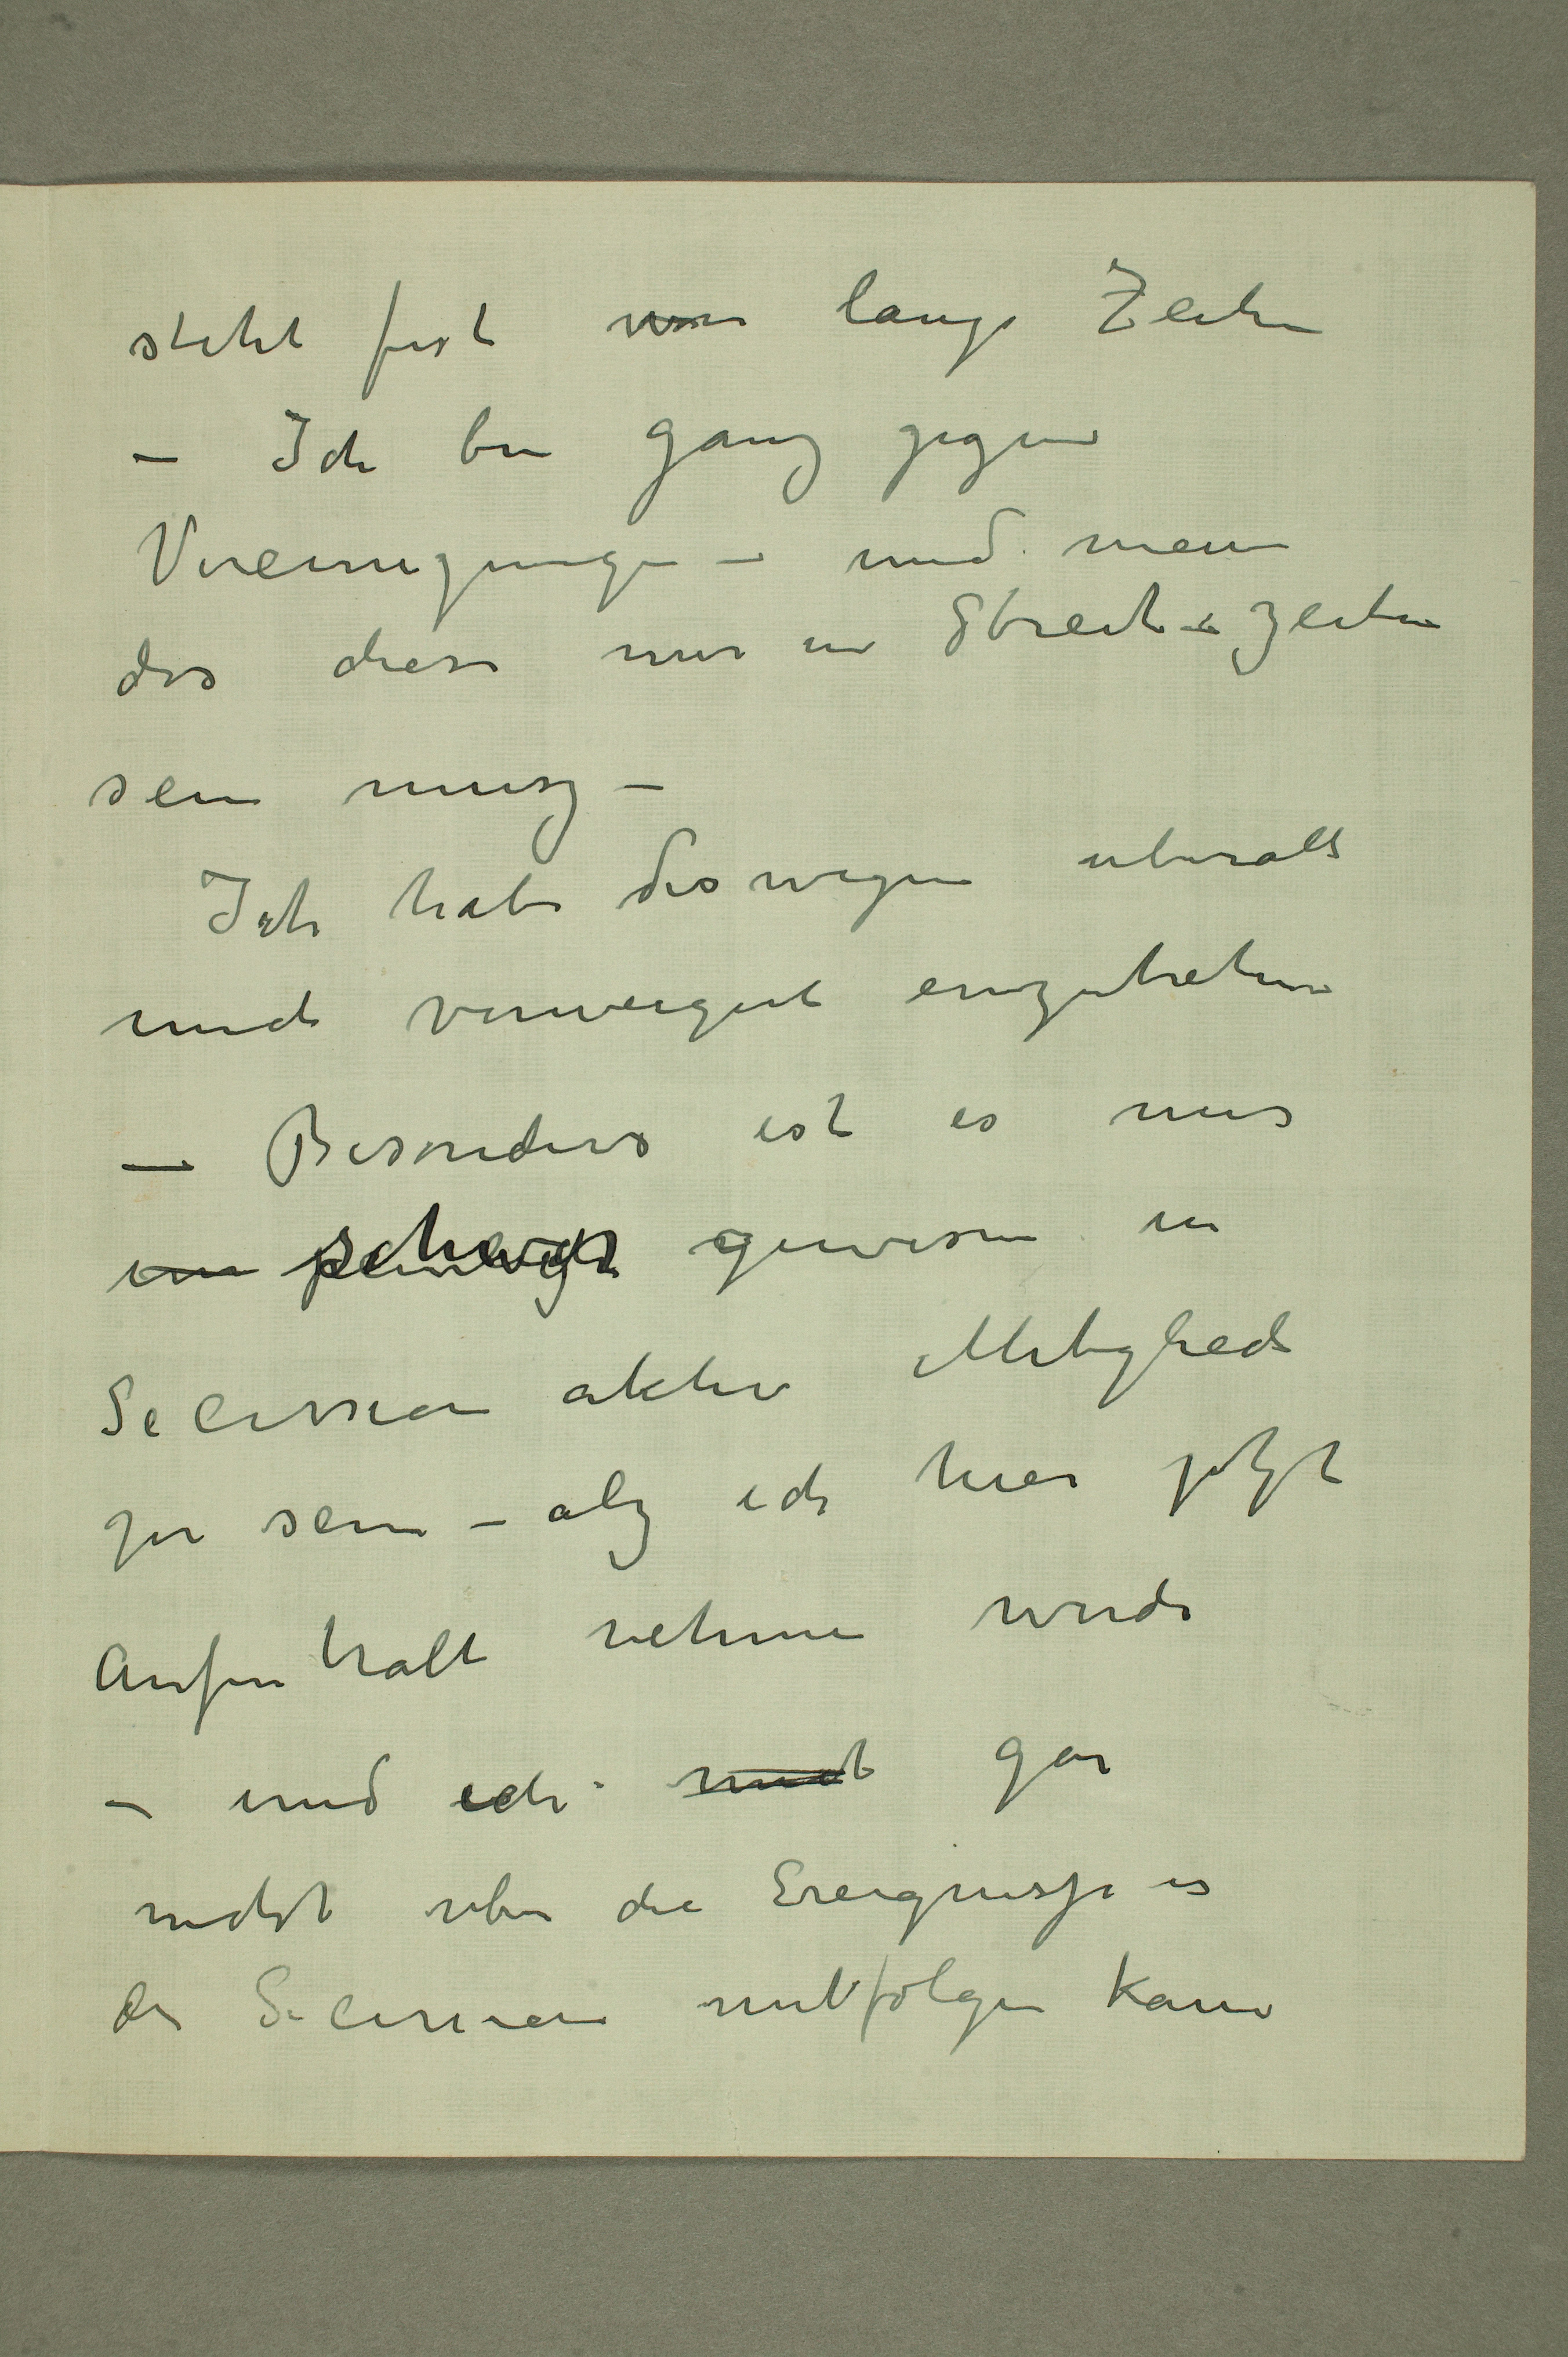 steht fest vor lange Zeiten
– Ich bin ganz gegen
Vereinigungen – und meine
das diese nur in Streit-zeiten
sein musz –
Ich habe deswegen uberalt
mich verweigert einzutreten
– Besonders ist es mir
schwer gewesen in
Secession aktiv Mitglied
zu sein – alz ich hier jetzt
Aufenthalt nehmen werde
– und ich nicht gar
nicht uber die Ereignisse es
der Secession mitfolgen kann